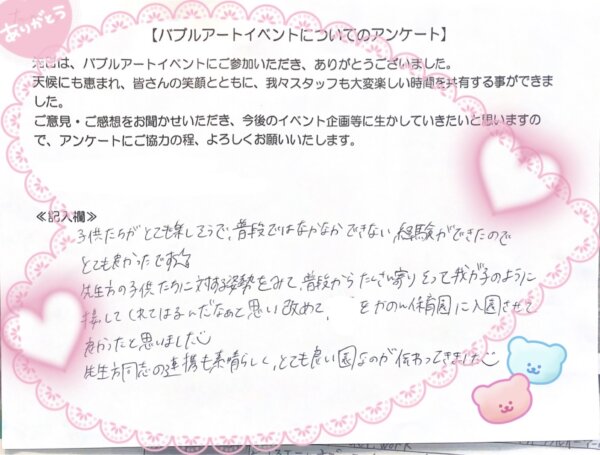 ありがとう
【バブルアートイベントについてのアンケート】
は、バブルアートイベントにご参加いただき、ありがとうございました。
天候にも恵まれ、皆さんの笑顔とともに、我々スタッフも大変楽しい時間を共有する事ができま
した。
ご意見・ご感想をお聞かせいただき、今後のイベント企画等に生かしていきたいと思いますの
で、アンケートにご協力の程、よろしくお願いいたします。
≪記入欄≫
子供たちがとても楽しそうで、普段ではなかなかできない経験ができたので
とても良かったです
先生方の子供たちに対する姿勢をみて、普段からたくさん寄りそって我が子のように
接してくれてはるんだなぁと思い改めて、 保育園に入園させて
良かったと思いました
先生方同志の連携も素晴らしく、とても良い園なのが伝わってきました